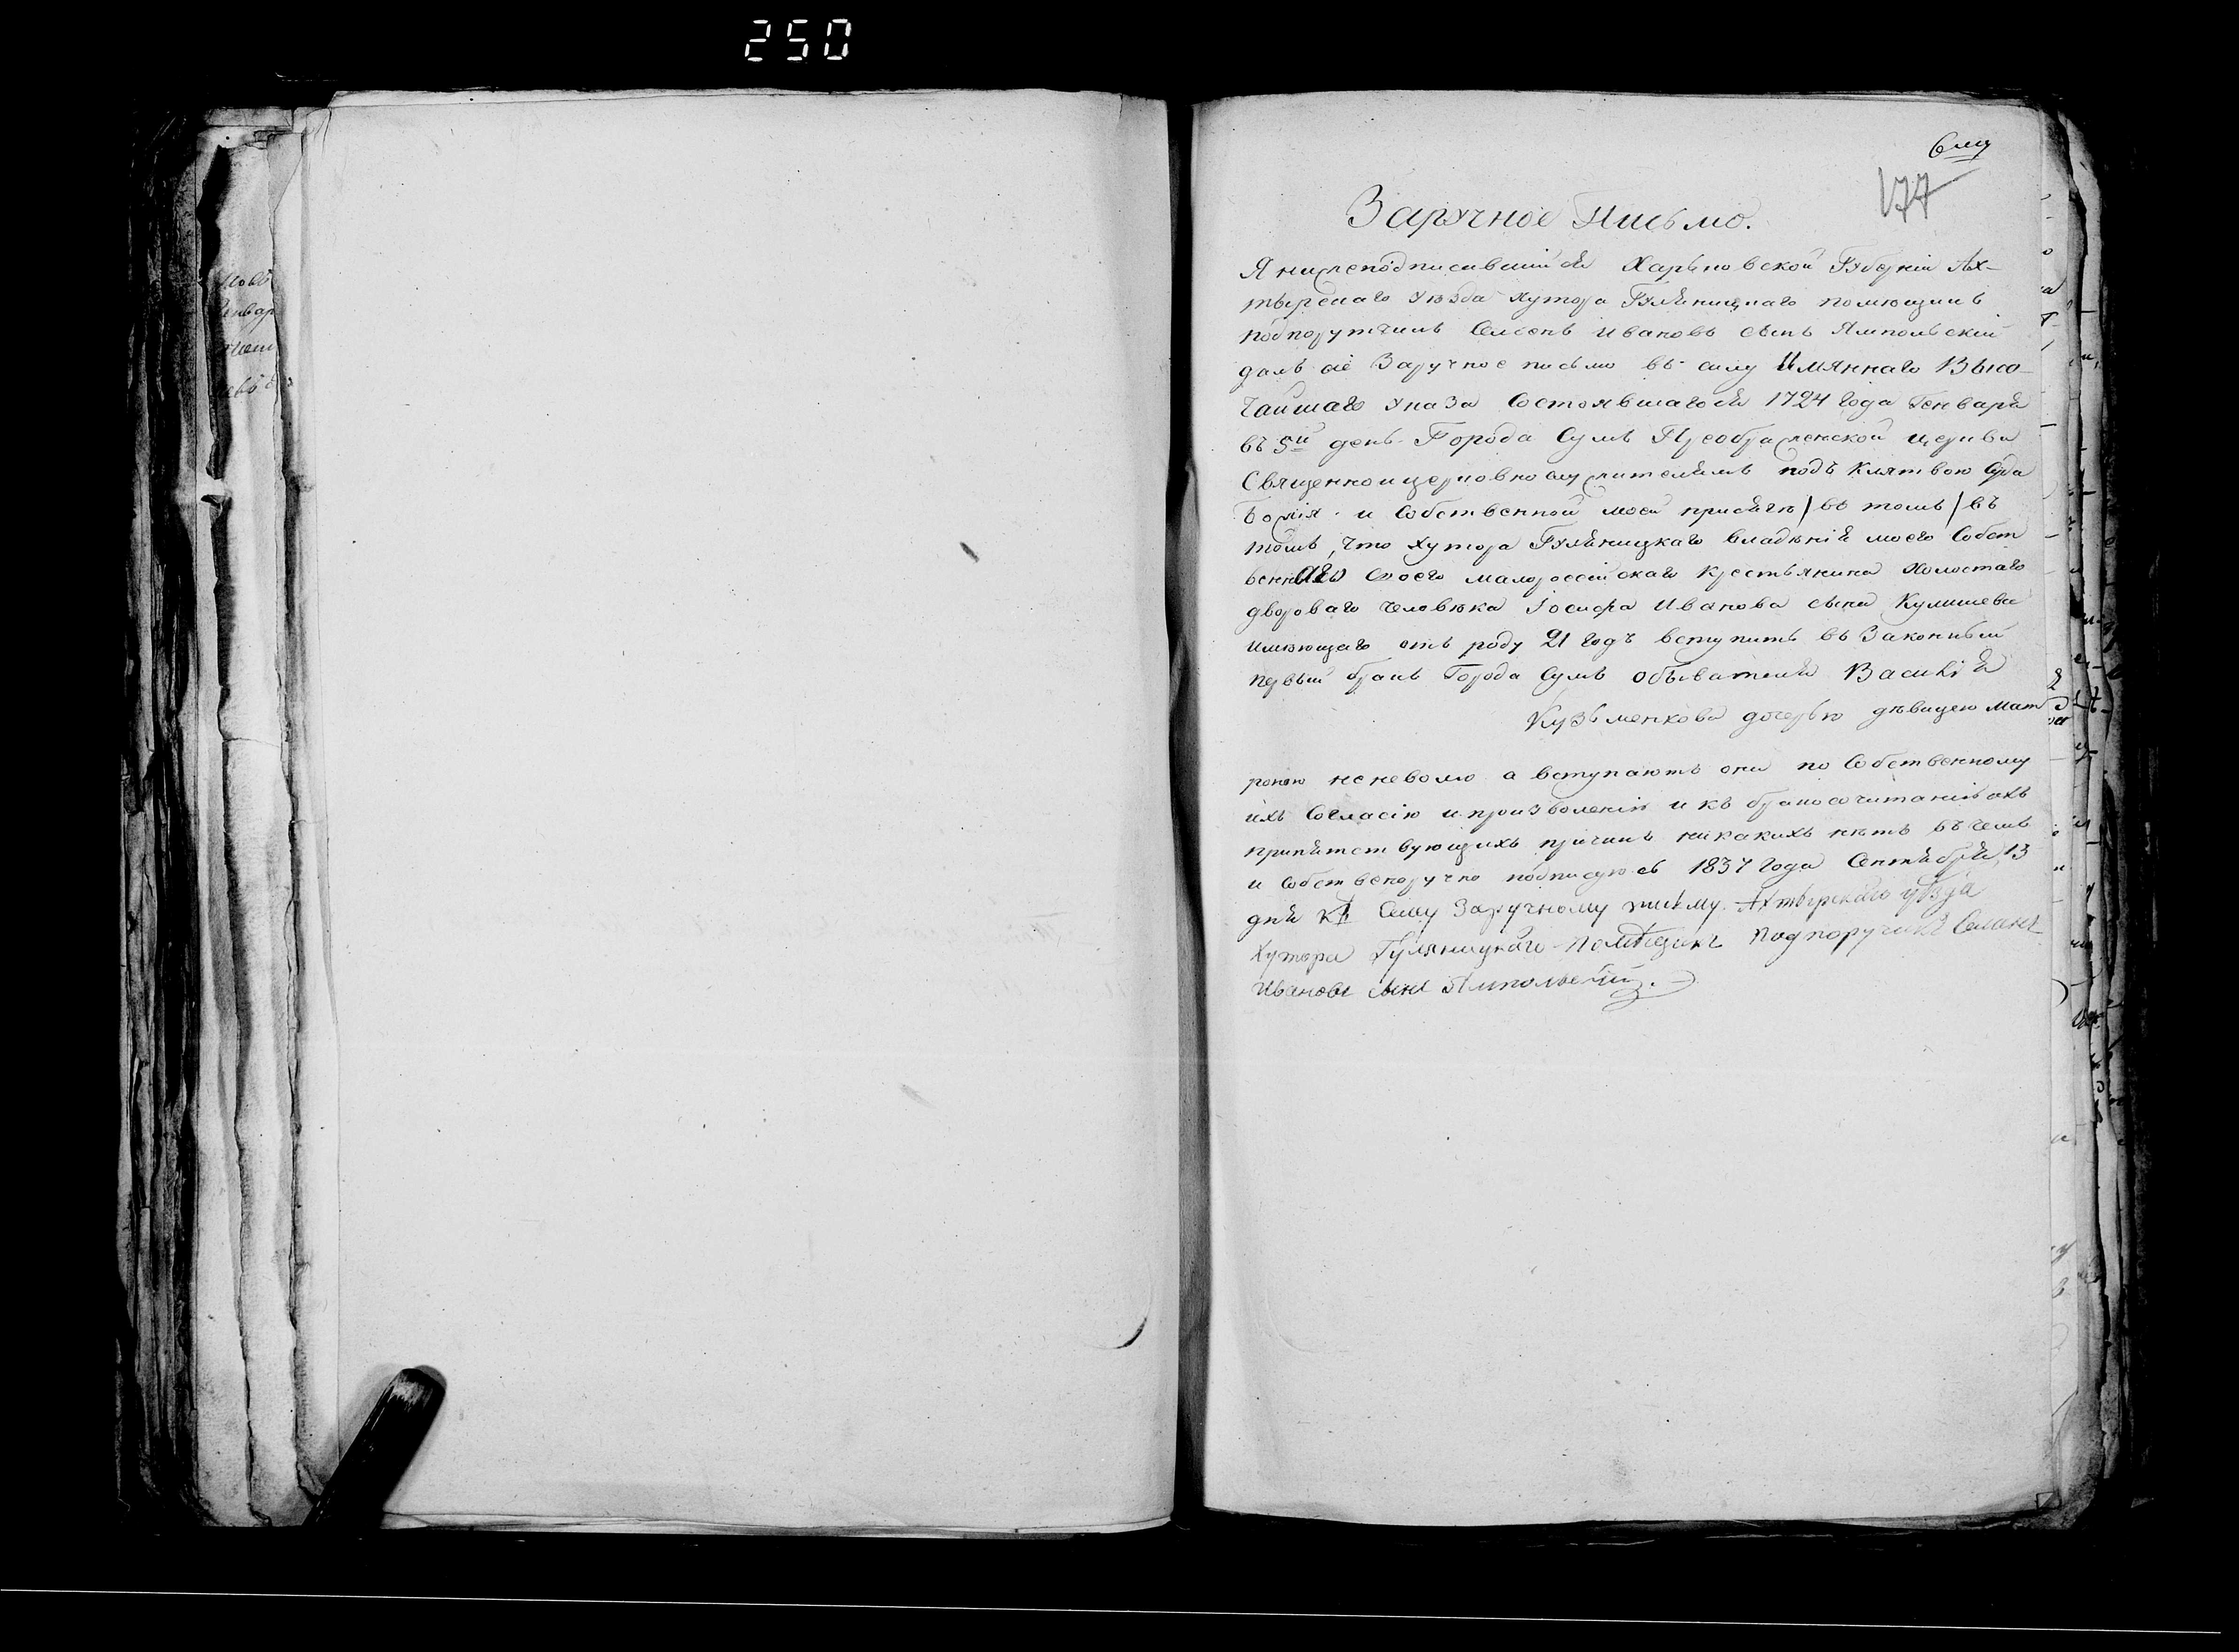 250
177
Заручное Письмо.
Я нижеподписавшійся Харьковской Губерніи Ах-
тырскаго уѣзда хутора Гуляницкаго помѣщикъ
подпорутчикъ Семенъ Ивановъ сынъ Ямпольскій
далъ сіе Заручное письмо въ силу Имяннаго Высо-
чайшаго указа Состоявшагося 1724 года Генваря
въ 5й день Города Сумъ Преображенской церкви
Священноицерковнослужителямъ подъ клятвою Суда
Божія и Собственной моей присяги / въ томъ / въ
томъ, что хутора Гуляницкаго владѣнія моего Собст
веннаго своего малороссійскаго крестьянина холостаго
двороваго человѣка Іосифа Иванова сына Кулишева
имѣющаго отъ роду 21 годъ вступить въ Законный
первый бракъ Города Сумъ обывателя Василія
Кузьменкова дочерью дѣвицею Мат
роною неневолю а вступаютъ они по Собственному
ихъ Согласію и произволенію и къ бракосочитанію ихъ
припятствующихъ причинъ никакихъ нѣтъ въ чемъ
и Собственоручно подписуюсь 1837 года Сентября 13
дня къ Сему Заручному письму. Ахтырскаго уѣзда
Хутора Гуляницкаго помѣщикъ подпоручикъ Семенъ
Ивановъ сынъ Ямпольскій.